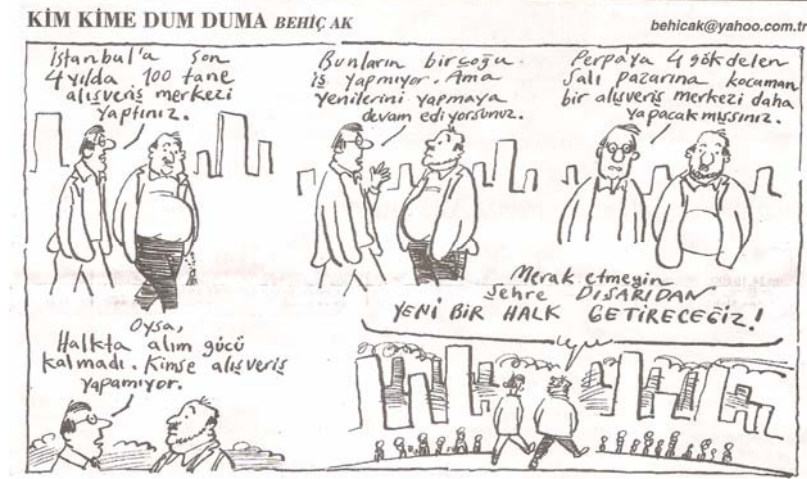 KİM KİME DUM DUMA BEHİÇ AK
behicak@yahoo.com.tr
İstanbul'a son
4 yılda 100 tane
alışveriş merkezi
yaptınız.
Bunların birçoğu
iş yapmıyor. Ama
yenilerini yapmaya
devam ediyorsunuz.
Perpa'ya 4 gökdelen
Salı pazarına kocaman
bir alışveriş merkezi daha
yapacakmışsınız.
Oysa,
Halkta alım gücü
kalmadı. Kimse alışveriş
yapamıyor.
Merak etmeyin
Şehre DIŞARIDAN
YENİ BİR HALK GETİRECEĞİZ!